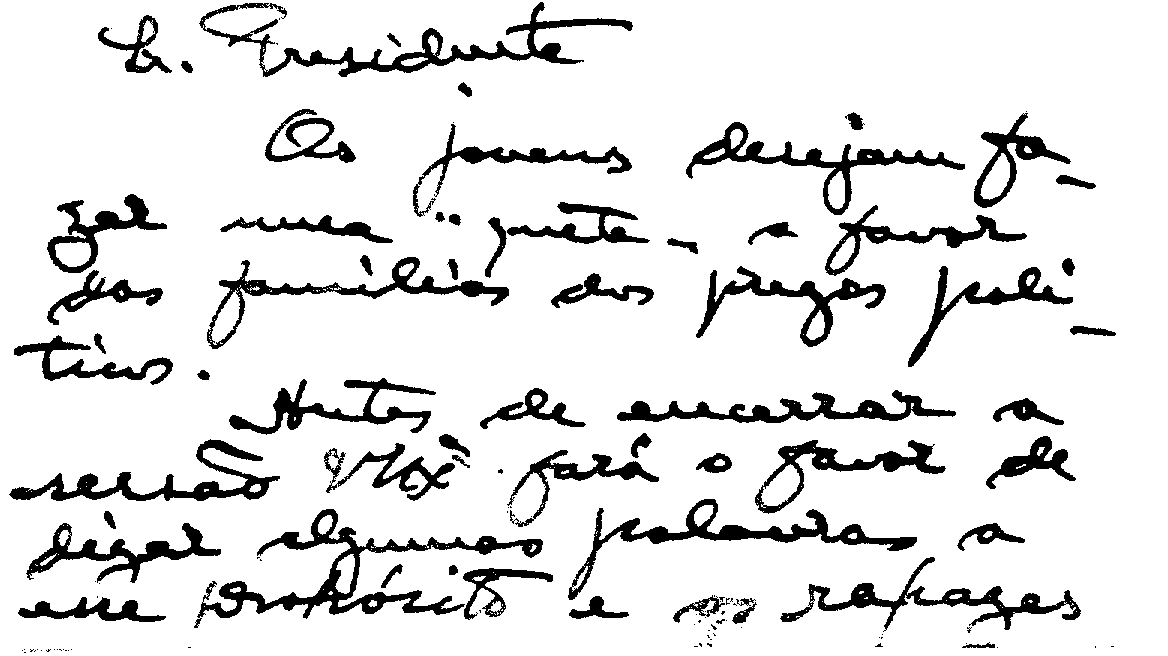 Sr. Presidente
Os jovens desejam fa-
zer uma "quête" a favor
das familias dos presos poli-
ticos.
Antes de encerrar a
sessão V. Exª fará o favor de
dizer algumas palavras a
esse propósito e os rapazes